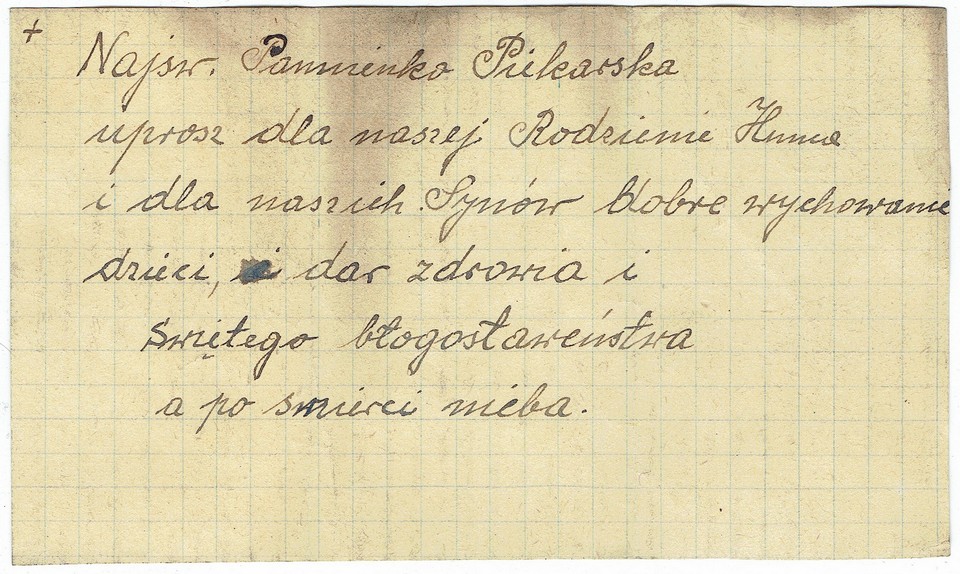 +
Najśw. Panienko Piekarska
uproś dla naszej Rodzinie
i dla naszich Synów dobre wychowanie
dzieci, i dar zdrowia i
świętego błogosławeństwa
a po smierci nieba.